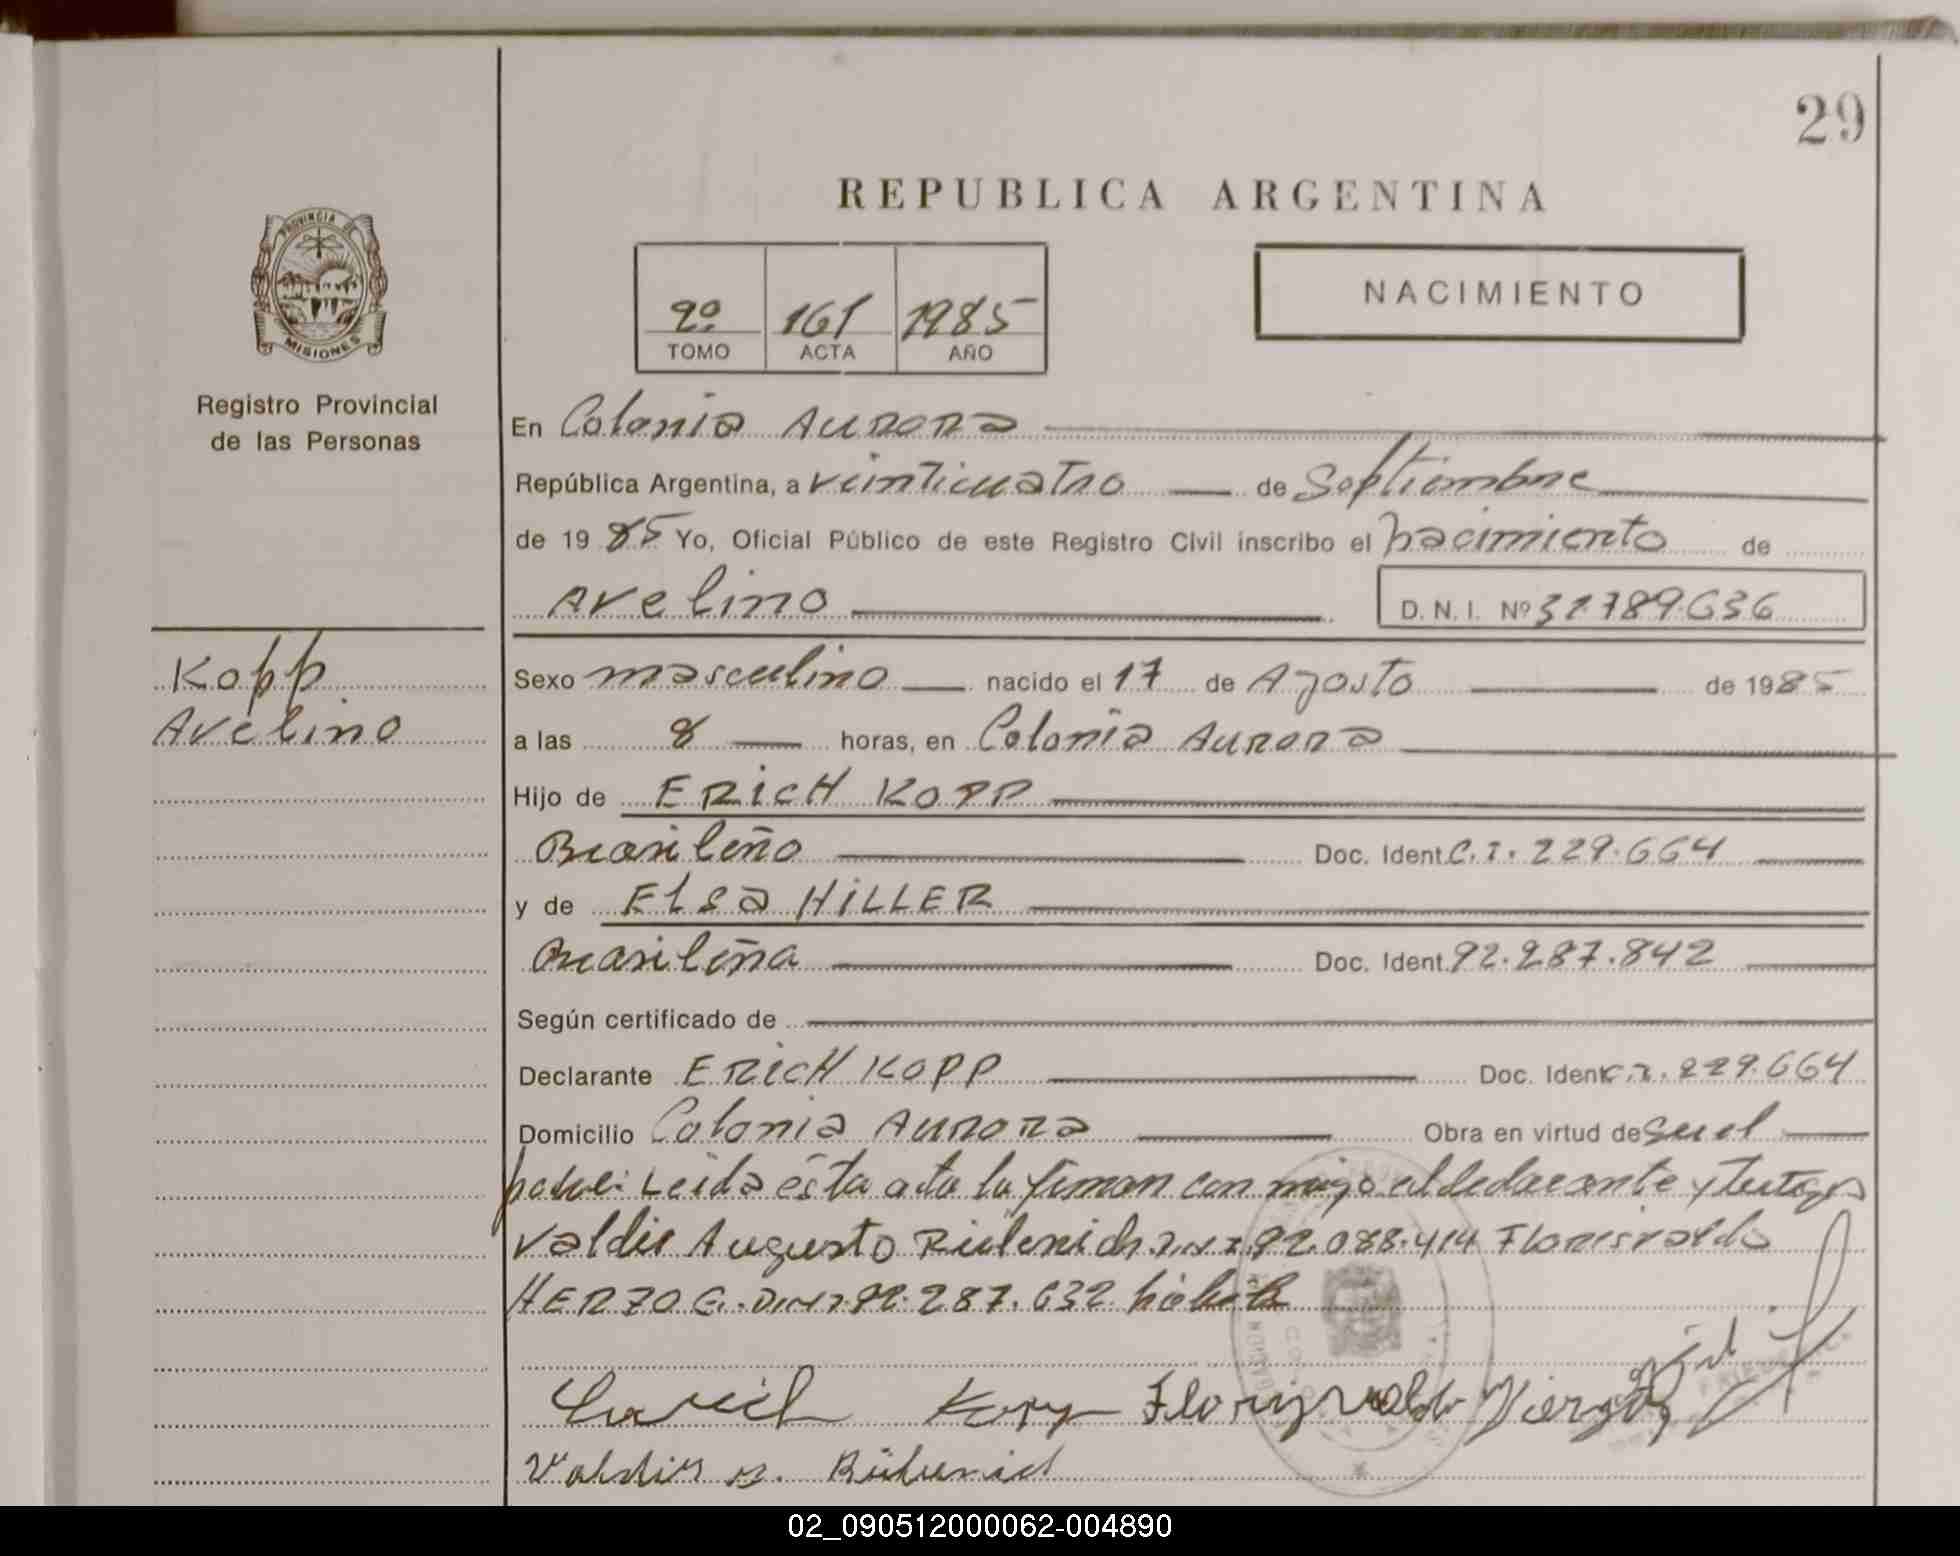 29
REPUBLICA ARGENTINA
PROVINCIA DE
MISIONES
Registro Provincial
de las Personas
2º 161 1985
TOMO ACTA AÑO
NACIMIENTO
En Colonia Aurora
República Argentina, a veinticuatro de Septiembre
de 1985 Yo, Oficial Público de este Registro Civil inscribo el nacimiento de
Avelino D. N. I. Nº 31.789.636
Kopp
Avelino
Sexo masculino nacido el 17 de Agosto de 1985
a las 8 horas, en Colonia Aurora
Hijo de ERicH KOPP
Brasileño Doc. Ident. C.I. 229.664
y de Elsa HiLLER
Brasileña Doc. Ident. 92.287.842
Según certificado de
Declarante ERicH KOPP Doc. Ident. C.I. 229.664
Domicilio Colonia Aurora Obra en virtud de ser el
padre: Leida ésta acta la firman conmigo el declarante y testigos
Valdir Augusto D.N.I. 92.088.414 Florisvaldo
HERZOG. D.N.I. 92.287.632
Erich Kopp Florisvaldo Herzog
Valdir A.
02_090512000062-004890